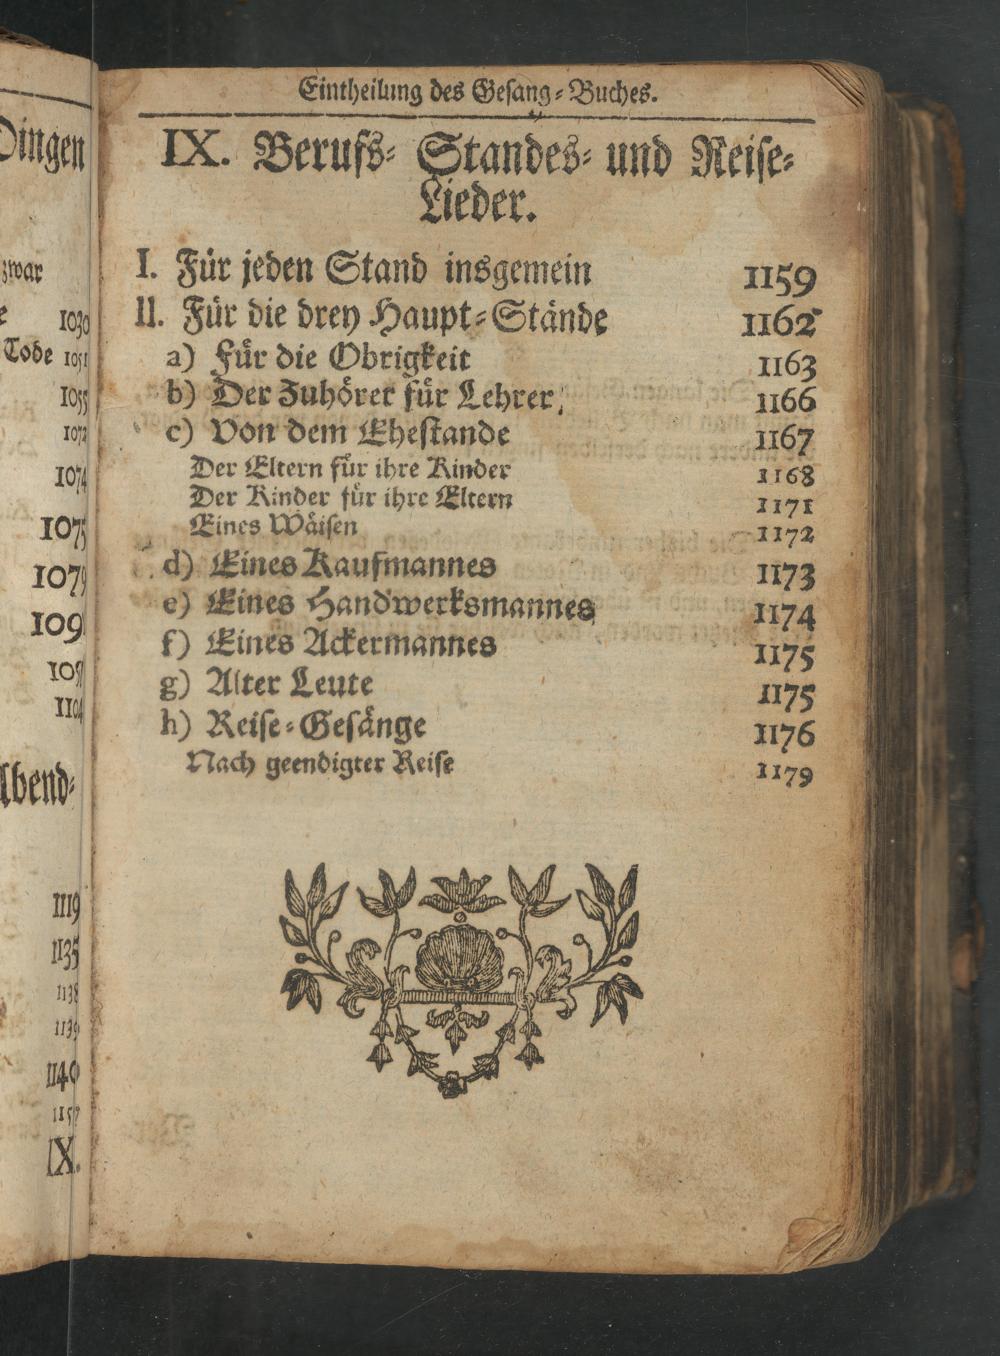 Dingen
zwar
1030
Tode 1051
1055
1072
1074
1075
1079
109
1104
Abend⸗
1119
1135
1138
1139
1140
1157
IX.
Eintheilung des Gesang⸗Buches.
IX. Berufs⸗ Standes⸗ und Reise⸗
Lieder.
I. Für jeden Stand insgemein 1159
II. Für die drey Haupt⸗Stände 1162
a) Für die Obrigkeit 1163
b) Der Zuhörer für Lehrer 1166
c) Von dem Ehestande 1167
Der Eltern für ihre Kinder 1168
Der Kinder für ihre Eltern 1171
Eines Wäisen 1172
d) Eines Kaufmannes 1173
e) Eines Handwerksmannes 1174
f) Eines Ackermannes 1175
g) Alter Leute 1175
h) Reise⸗Gesänge 1176
Nach geendigter Reise 1179